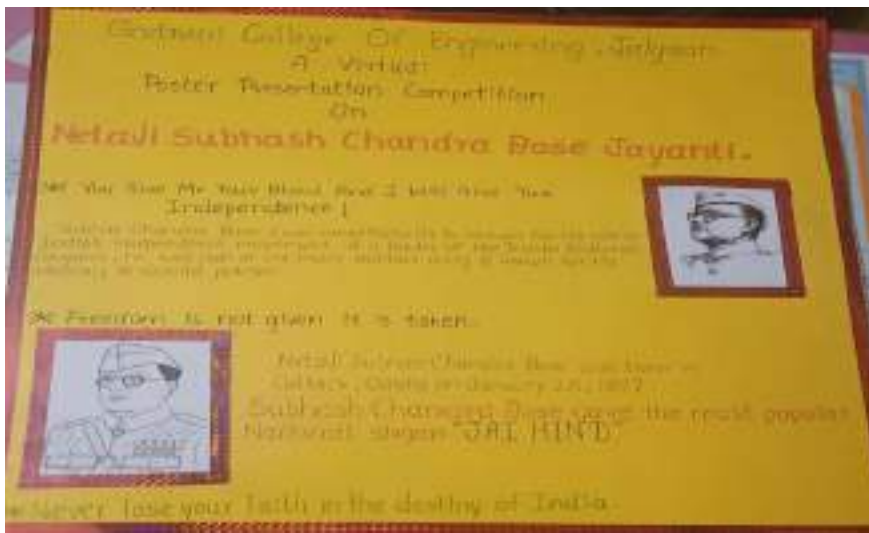 Godavari College Of Engineering, Jalgaon
A Virtual
Poster Presentation Competition
On
Netaji Subhash Chandra Bose Jayanti.
* You Give Me Your Blood And I Will Give You
Independence!
Subhash Chandra Bose
Indian independence movement
* Freedom is not given it is taken.
Netaji Subhash Chandra Bose was born in
Cuttack, Odisha on January 23, 1897
Subhash Chandra Bose gave the most popular
National slogan "JAI HIND"
* Never lose your faith in the destiny of India.